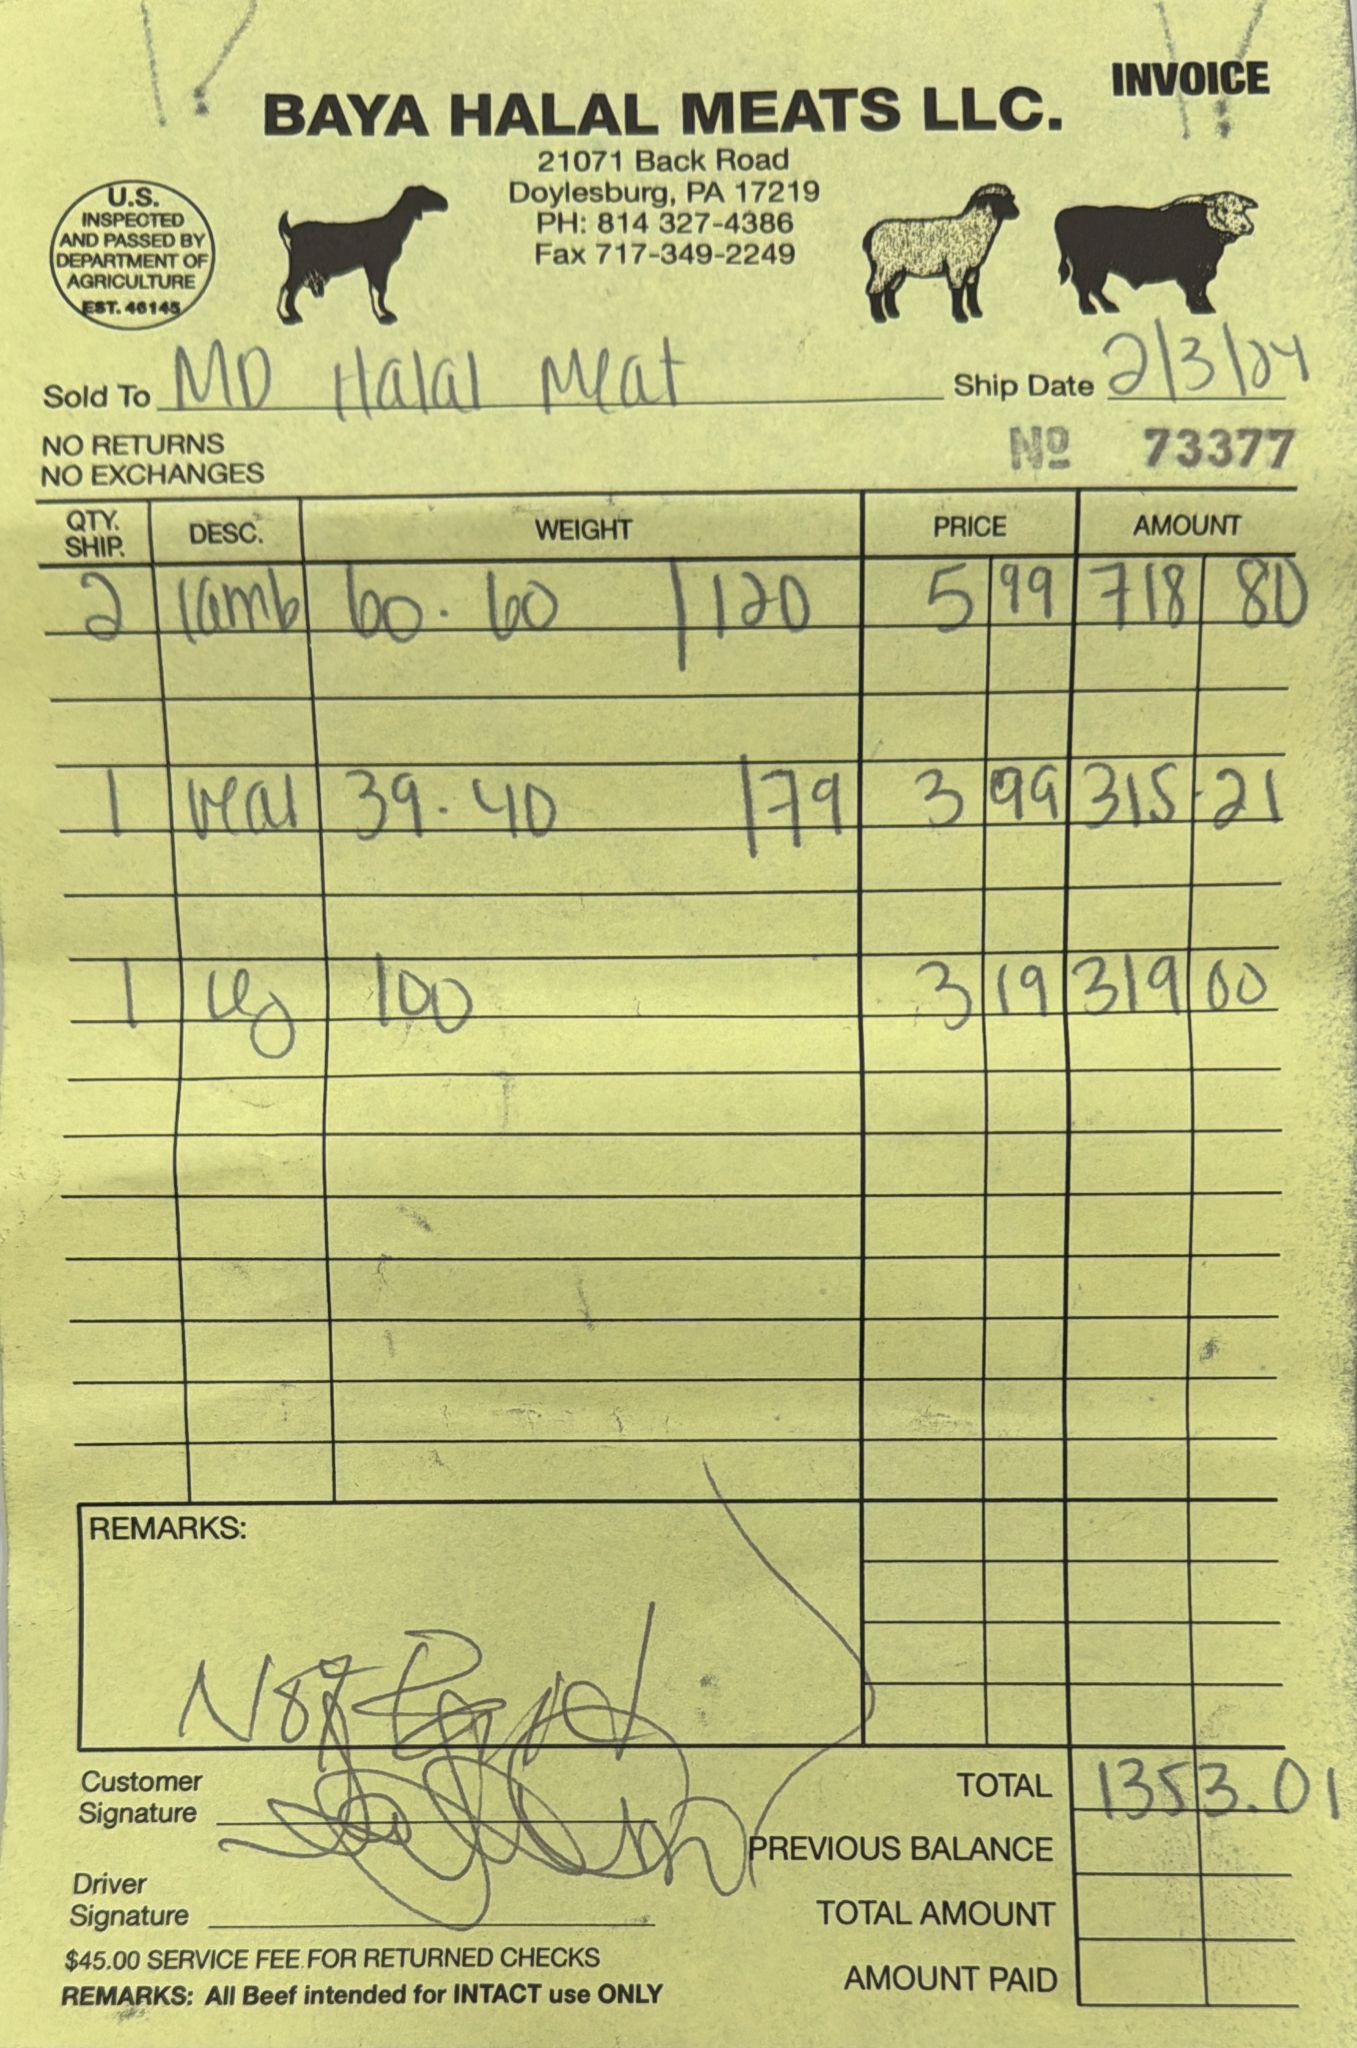 INVOICE
BAYA HALAL MEATS LLC.
21071 Back Road
Doylesburg, PA 17219
PH: 814 327-4386
Fax 717-349-2249
U.S.
INSPECTED
AND PASSED BY
DEPARTMENT OF
AGRICULTURE
EST. 46145
Sold To MD Halal Meat Ship Date 2/3/24
NO RETURNS
NO EXCHANGES
Nº 73377
QTY. SHIP. DESC. WEIGHT PRICE AMOUNT
2 lamb 60. 60 | 120 5 99 718 80
1 veal 39. 40 | 79 3 99 315.21
1 leg 100 3 19 319 00
REMARKS:
Not Paid
Customer
Signature
TOTAL 1353.01
PREVIOUS BALANCE
Driver
Signature
TOTAL AMOUNT
AMOUNT PAID
$45.00 SERVICE FEE FOR RETURNED CHECKS
REMARKS: All Beef intended for INTACT use ONLY